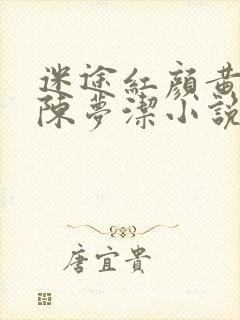 迷途紅顏黃
陳夢潔小說
唐宜貴